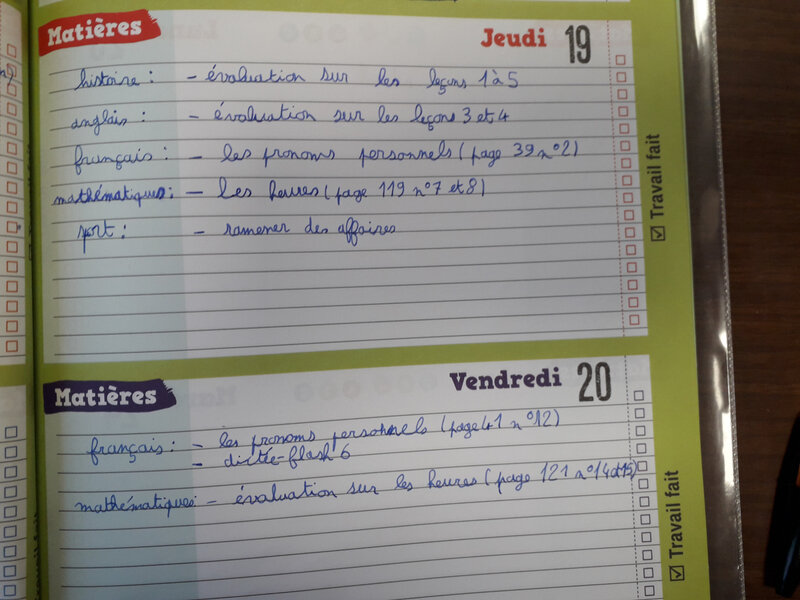 Matières
Jeudi 19
histoire : - évaluation sur les leçons 1 à 5
anglais : - évaluation sur les leçons 3 et 4
français : - les pronoms personnels (page 39 n°2)
mathématiques : - Les heures (page 119 n°7 et 8)
sport : - ramener des affaires
Travail fait
Matières
Vendredi 20
français : - les pronoms personnels (page 41 n°12)
- dictée-flash 6
mathématiques - évaluation sur les heures (page 121 n°14 et 15)
Travail fait